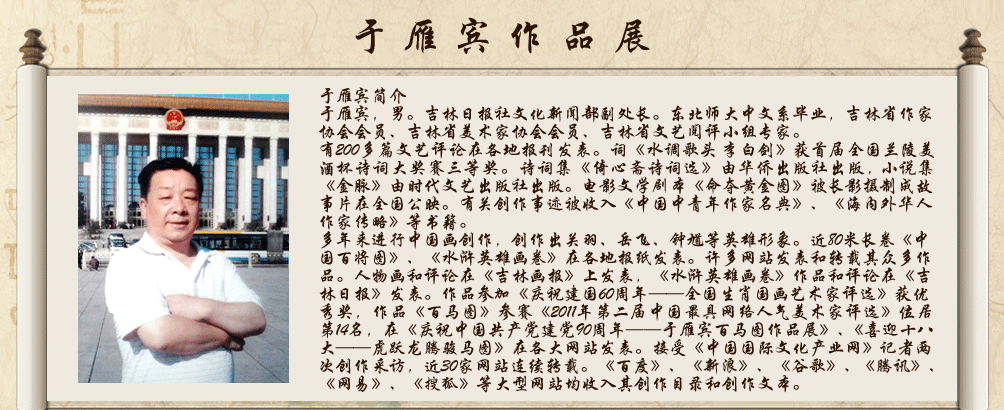 于雁宾作品展
于雁宾简介
于雁宾，男。吉林日报社文化新闻部副处长。东北师大中文系毕业，吉林省作家
协会会员、吉林省美术家协会会员、吉林省文艺阅评小组专家。
有200多篇文艺评论在各地报刊发表。词《水调歌头 李白剑》获首届全国兰陵美
酒杯诗词大奖赛三等奖。诗词集《倚心斋诗词选》由华侨出版社出版，小说集
《金脉》由时代文艺出版社出版。电影文学剧本《命夺黄金图》被长影摄制成故
事片在全国公映。有关创作事迹被收入《中国中青年作家名典》、《海内外华人
作家传略》等书籍。
多年来进行中国画创作，创作出关羽、岳飞、钟馗等英雄形象。近80米长卷《中
国百将图》、《水浒英雄画卷》在各地报纸发表。许多网站发表和转载其众多作
品。人物画和评论在《吉林画报》上发表，《水浒英雄画卷》作品和评论在《吉
林日报》发表。作品参加《庆祝建国60周年——全国生肖国画艺术家评选》获优
秀奖，作品《百马图》参赛《2011年第二届中国最具网络人气美术家评选》位居
第14名，在《庆祝中国共产党建党90周年——于雁宾百马图作品展》、《喜迎十八
大——虎跃龙腾骏马图》在各大网站发表。接受《中国国际文化产业网》记者两
次创作采访，近30家网站连续转载。《百度》、《新浪》、《谷歌》、《腾讯》、
《网易》、《搜狐》等大型网站均收入其创作目录和创作文本。